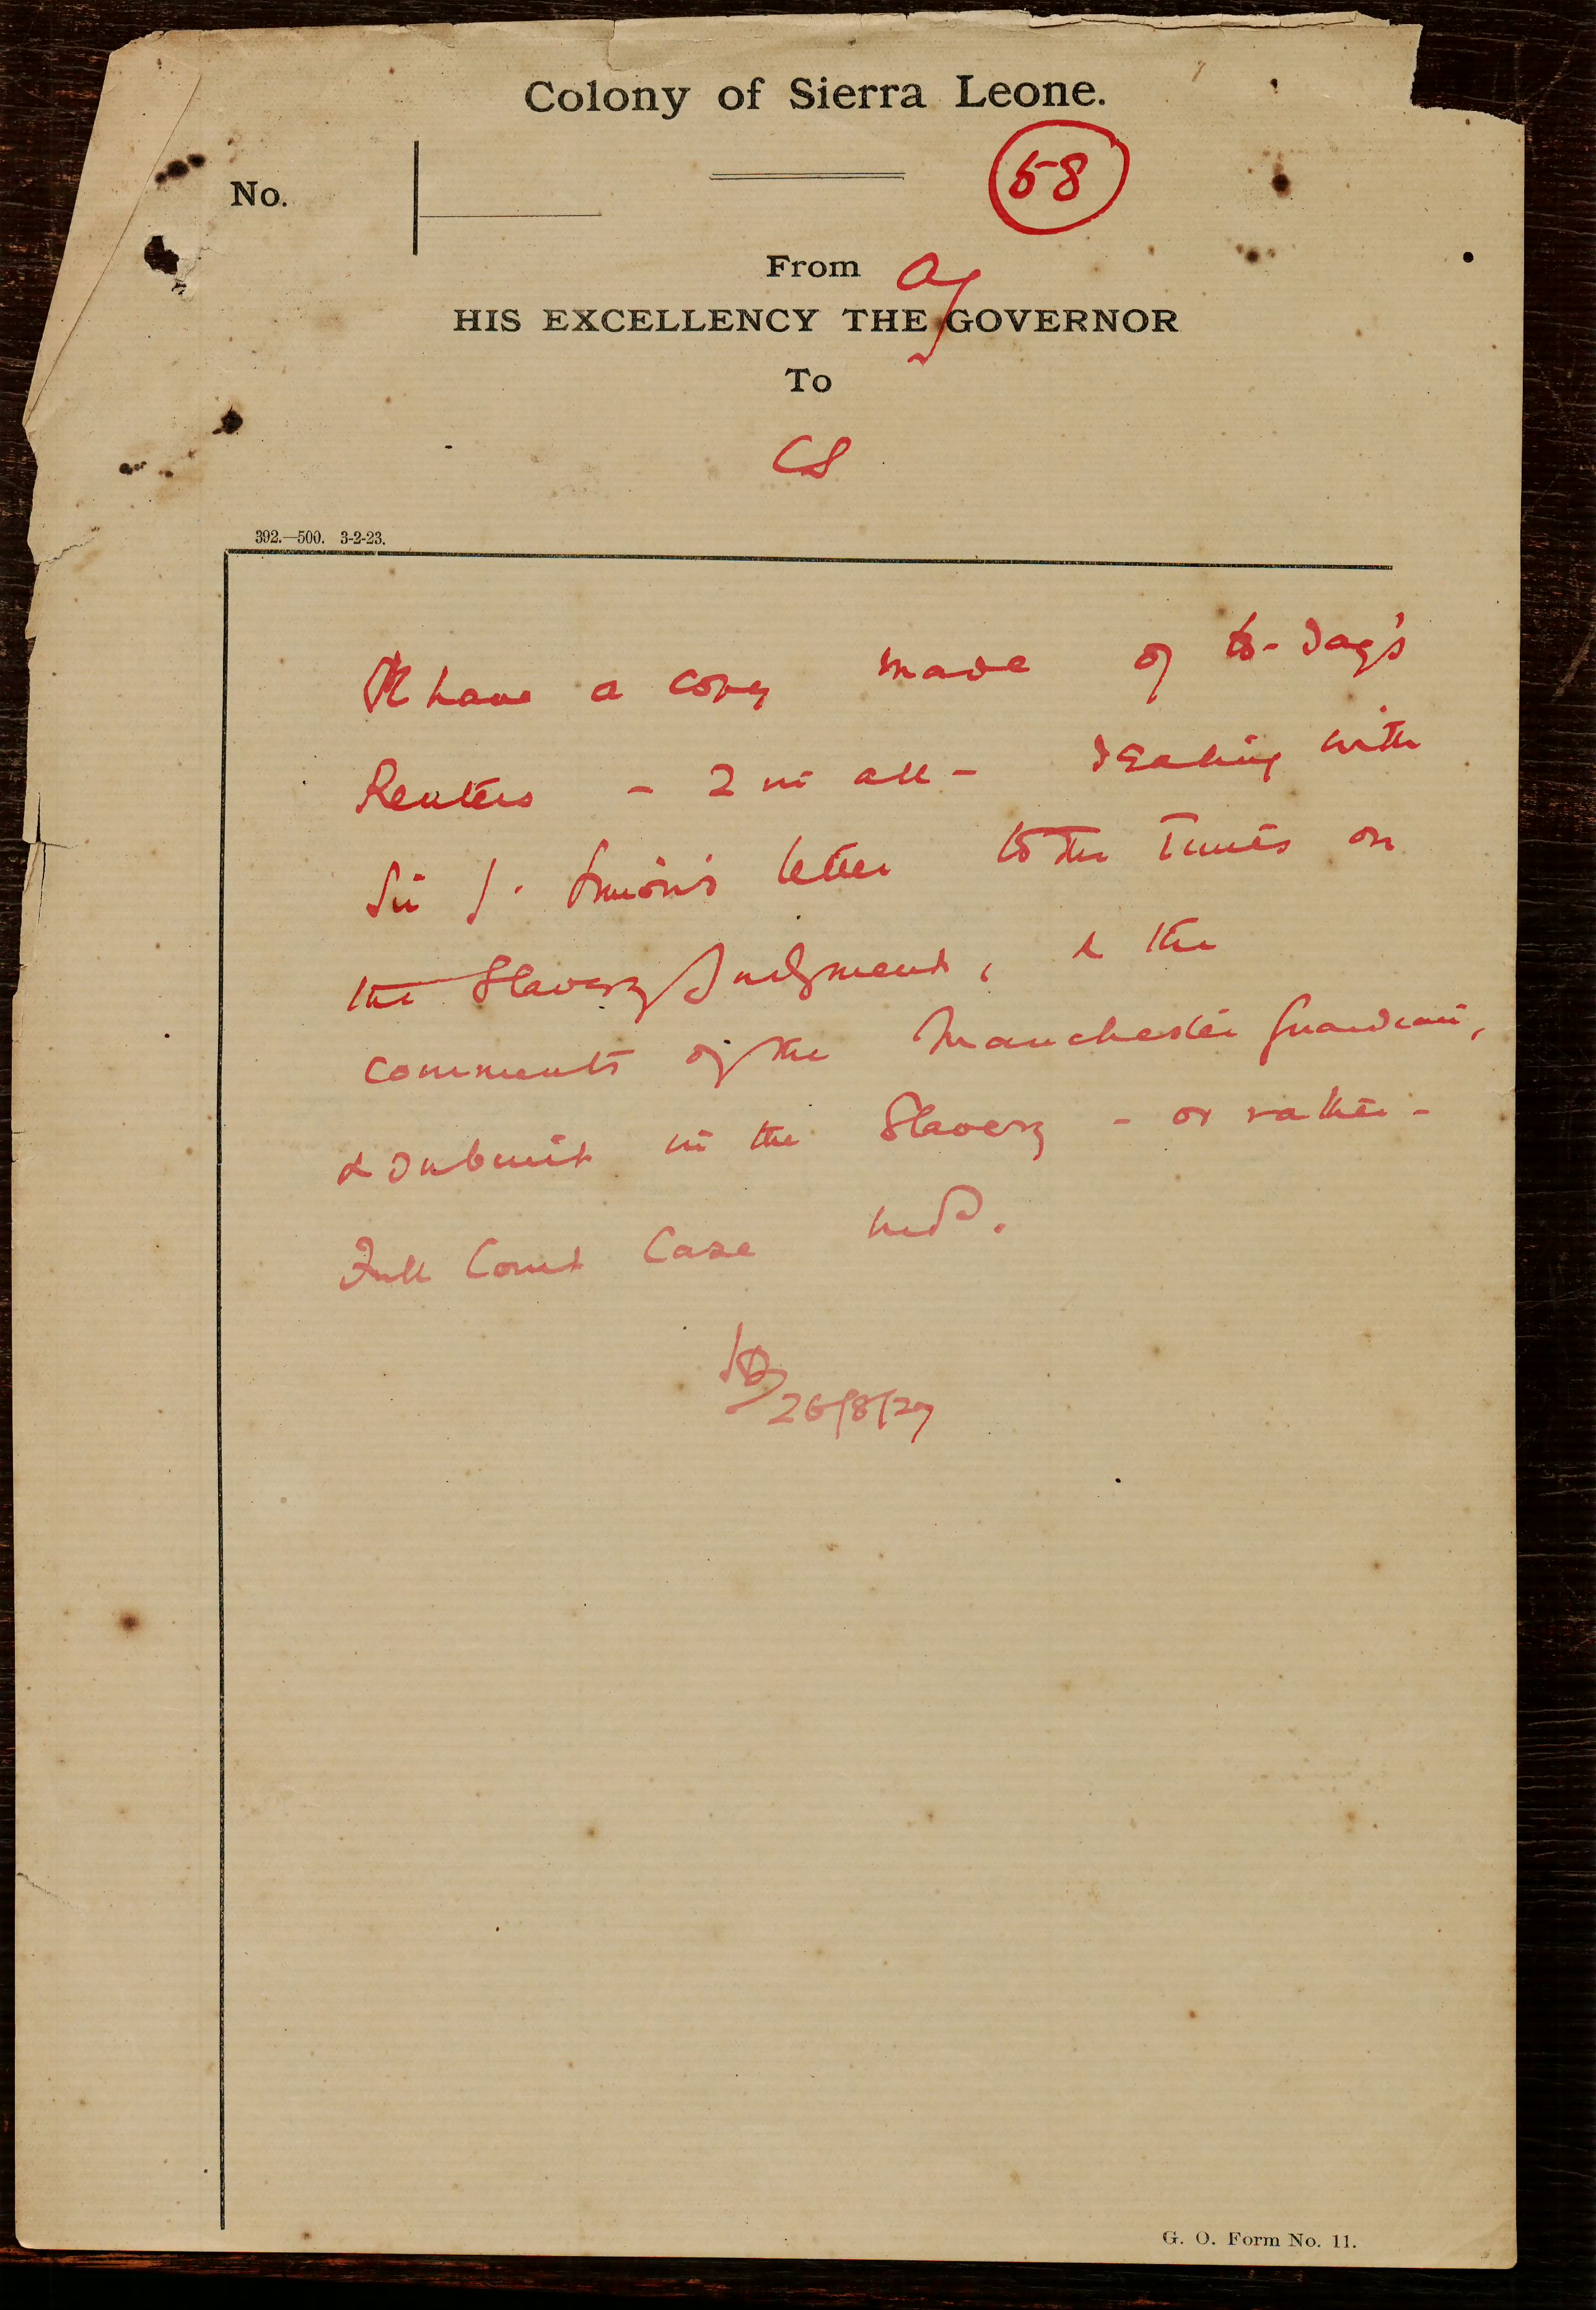 Colony of Sierra Leone.
58
No.
From Ag
HIS EXCELLENCY THE GOVERNOR
To
CS
392.—500. 3-2-23.
have a copy made of to-day's
Reuters - 2 in all - dealing with
Sir J. Simon's letter to the Times on
the Slavery Judgment, & the
comments of the Manchester Guardian,
& submit in the Slavery - or rather -
Full Court Case
26/8/27
G. O. Form No. 11.